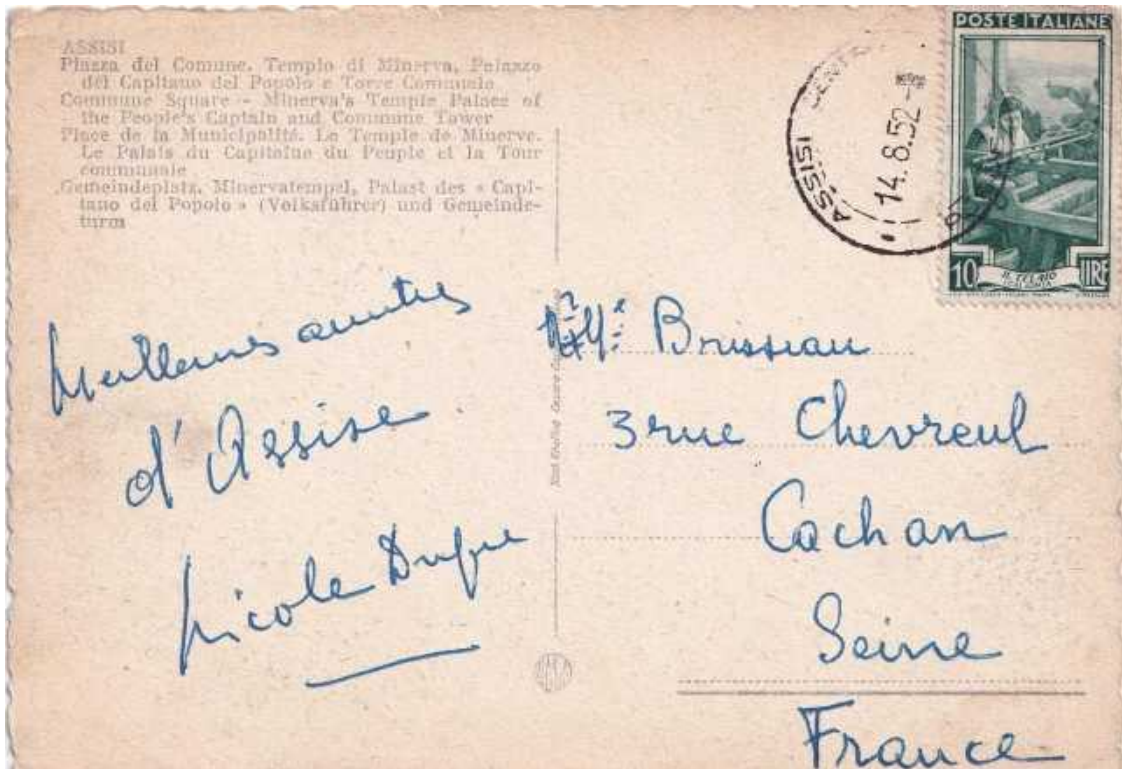 ASSISI
Piazza del Comune. Tempio di Minerva, Palazzo
del Capitano del Popolo e Torre Comunale
Commune Square - Minerva's Temple Palace of
the People's Captain and Commune Tower
Place de la Municipalité. Le Temple de Minerve.
Le Palais du Capitaine du Peuple et la Tour
communale
Gemeindeplatz. Minervatempel, Palast des « Capi-
tano del Popolo » (Volksführer) und Gemeinde-
turm
POSTE ITALIANE
ASSISI
14.8.52
10 LIRE
IL TELAIO
Meilleures amitiés
d'Assise
Nicole
Brissiau
3 rue Chevreul
Cachan
Seine
France